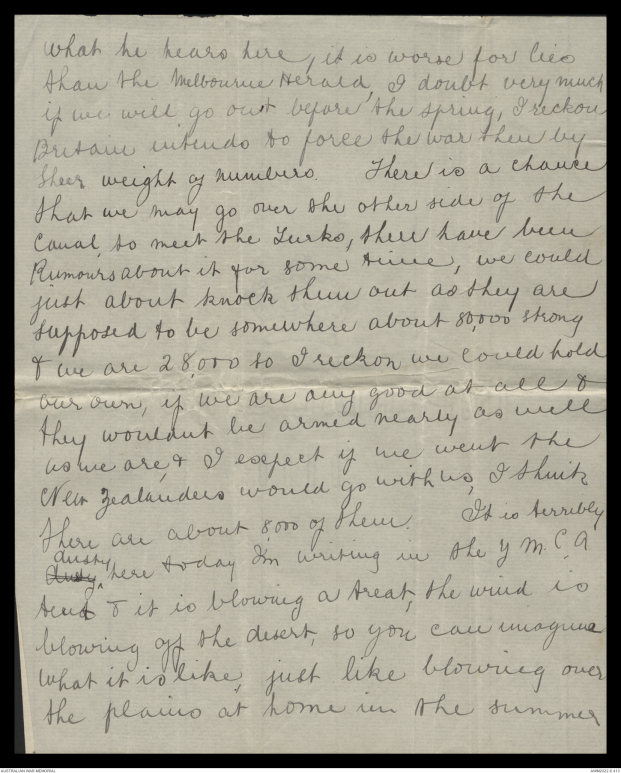 what he hears here, it is worse for lies
than the Melbourne Herald, I doubt very much
if we will go out before the spring, I reckon
Britain intends to force the war then by
Sheer weight of numbers. There is a chance
that we may go over the other side of the
Canal, to meet the Turks, there have been
Rumours about it for some time, we could
just about knock them out as they are
supposed to be somewhere about 80,000 strong
& we are 28,000 so I reckon we could hold
our own, if we are any good at all &
they wouldnt be armed nearly as well
as we are, & I expect if we went the
New Zealanders would go with us, I think
there are about 8,000 of them. It is terribly
dusty
dusty here today Im writing in the Y M. C. A
tent & it is blowing a treat, the wind is
blowing off the desert, so you can imagine
what it is like, just like blowing over
the plains at home in the summer
AUSTRALIAN WAR MEMORIAL